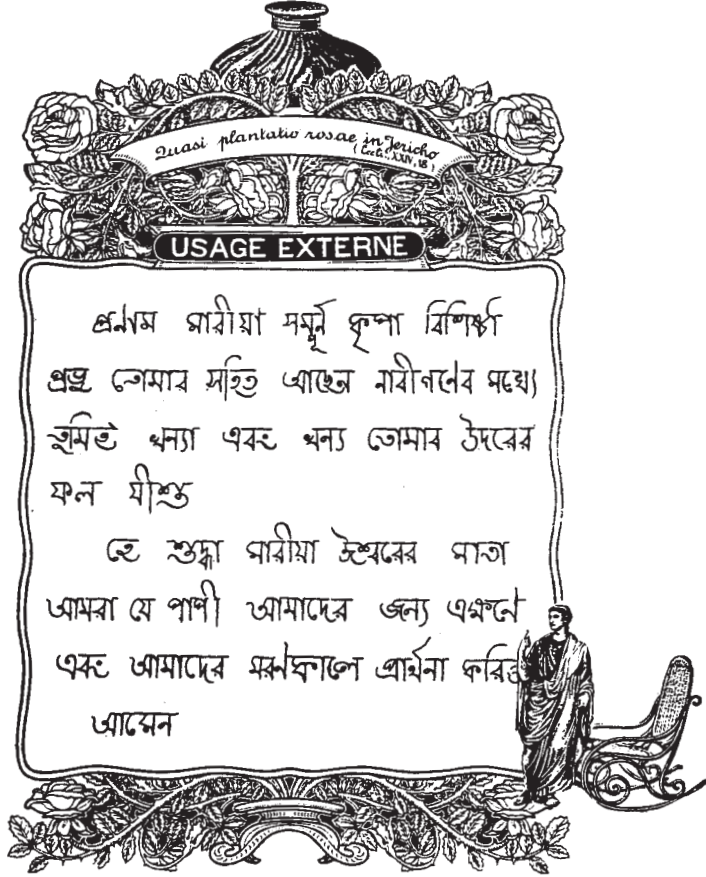 Quasi plantatio rosae in Jericho
(Eccli. XXIV, 18)
USAGE EXTERNE
প্রনাম মারীয়া সমপূর্ন কৃপা বিশিষ্টা
প্রভু তোমার সহিত আছেন নারীগনের মধ্যে
তুমিই ধন্যা এবং ধন্য তোমার উদরের
ফল যীশু
হে শুদ্ধা মারীয়া ঈশ্বরের মাতা
আমরা যে পাপী আমাদের জন্য এক্ষনে
এবং আমাদের মরণকালে প্রার্থনা করিও
আমেন